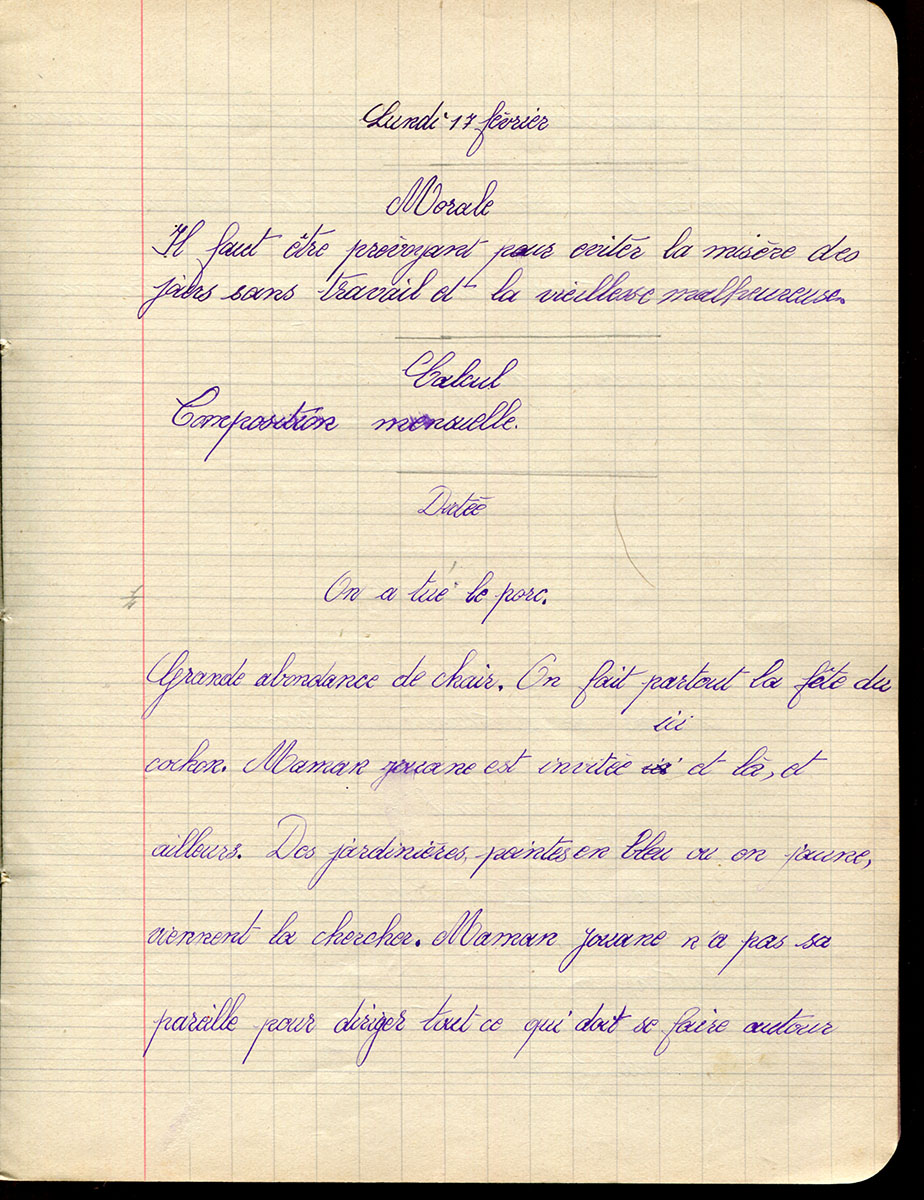 Lundi 17 février
Morale
Il faut être prévoyant pour eviter la misère des
jours sans travail et la vieillesse malheureuse.
Calcul
Composition mensuelle.
Dictée
On a tué le porc.
Grande abondance de chair. On fait partout la fête du
ici
cochon. Maman jouane est invitée ici et là, et
ailleurs. Des jardinières, peintes en bleu ou en jaune,
viennent la chercher. Maman jouane n'a pas sa
pareille pour diriger tout ce qui doit se faire autour